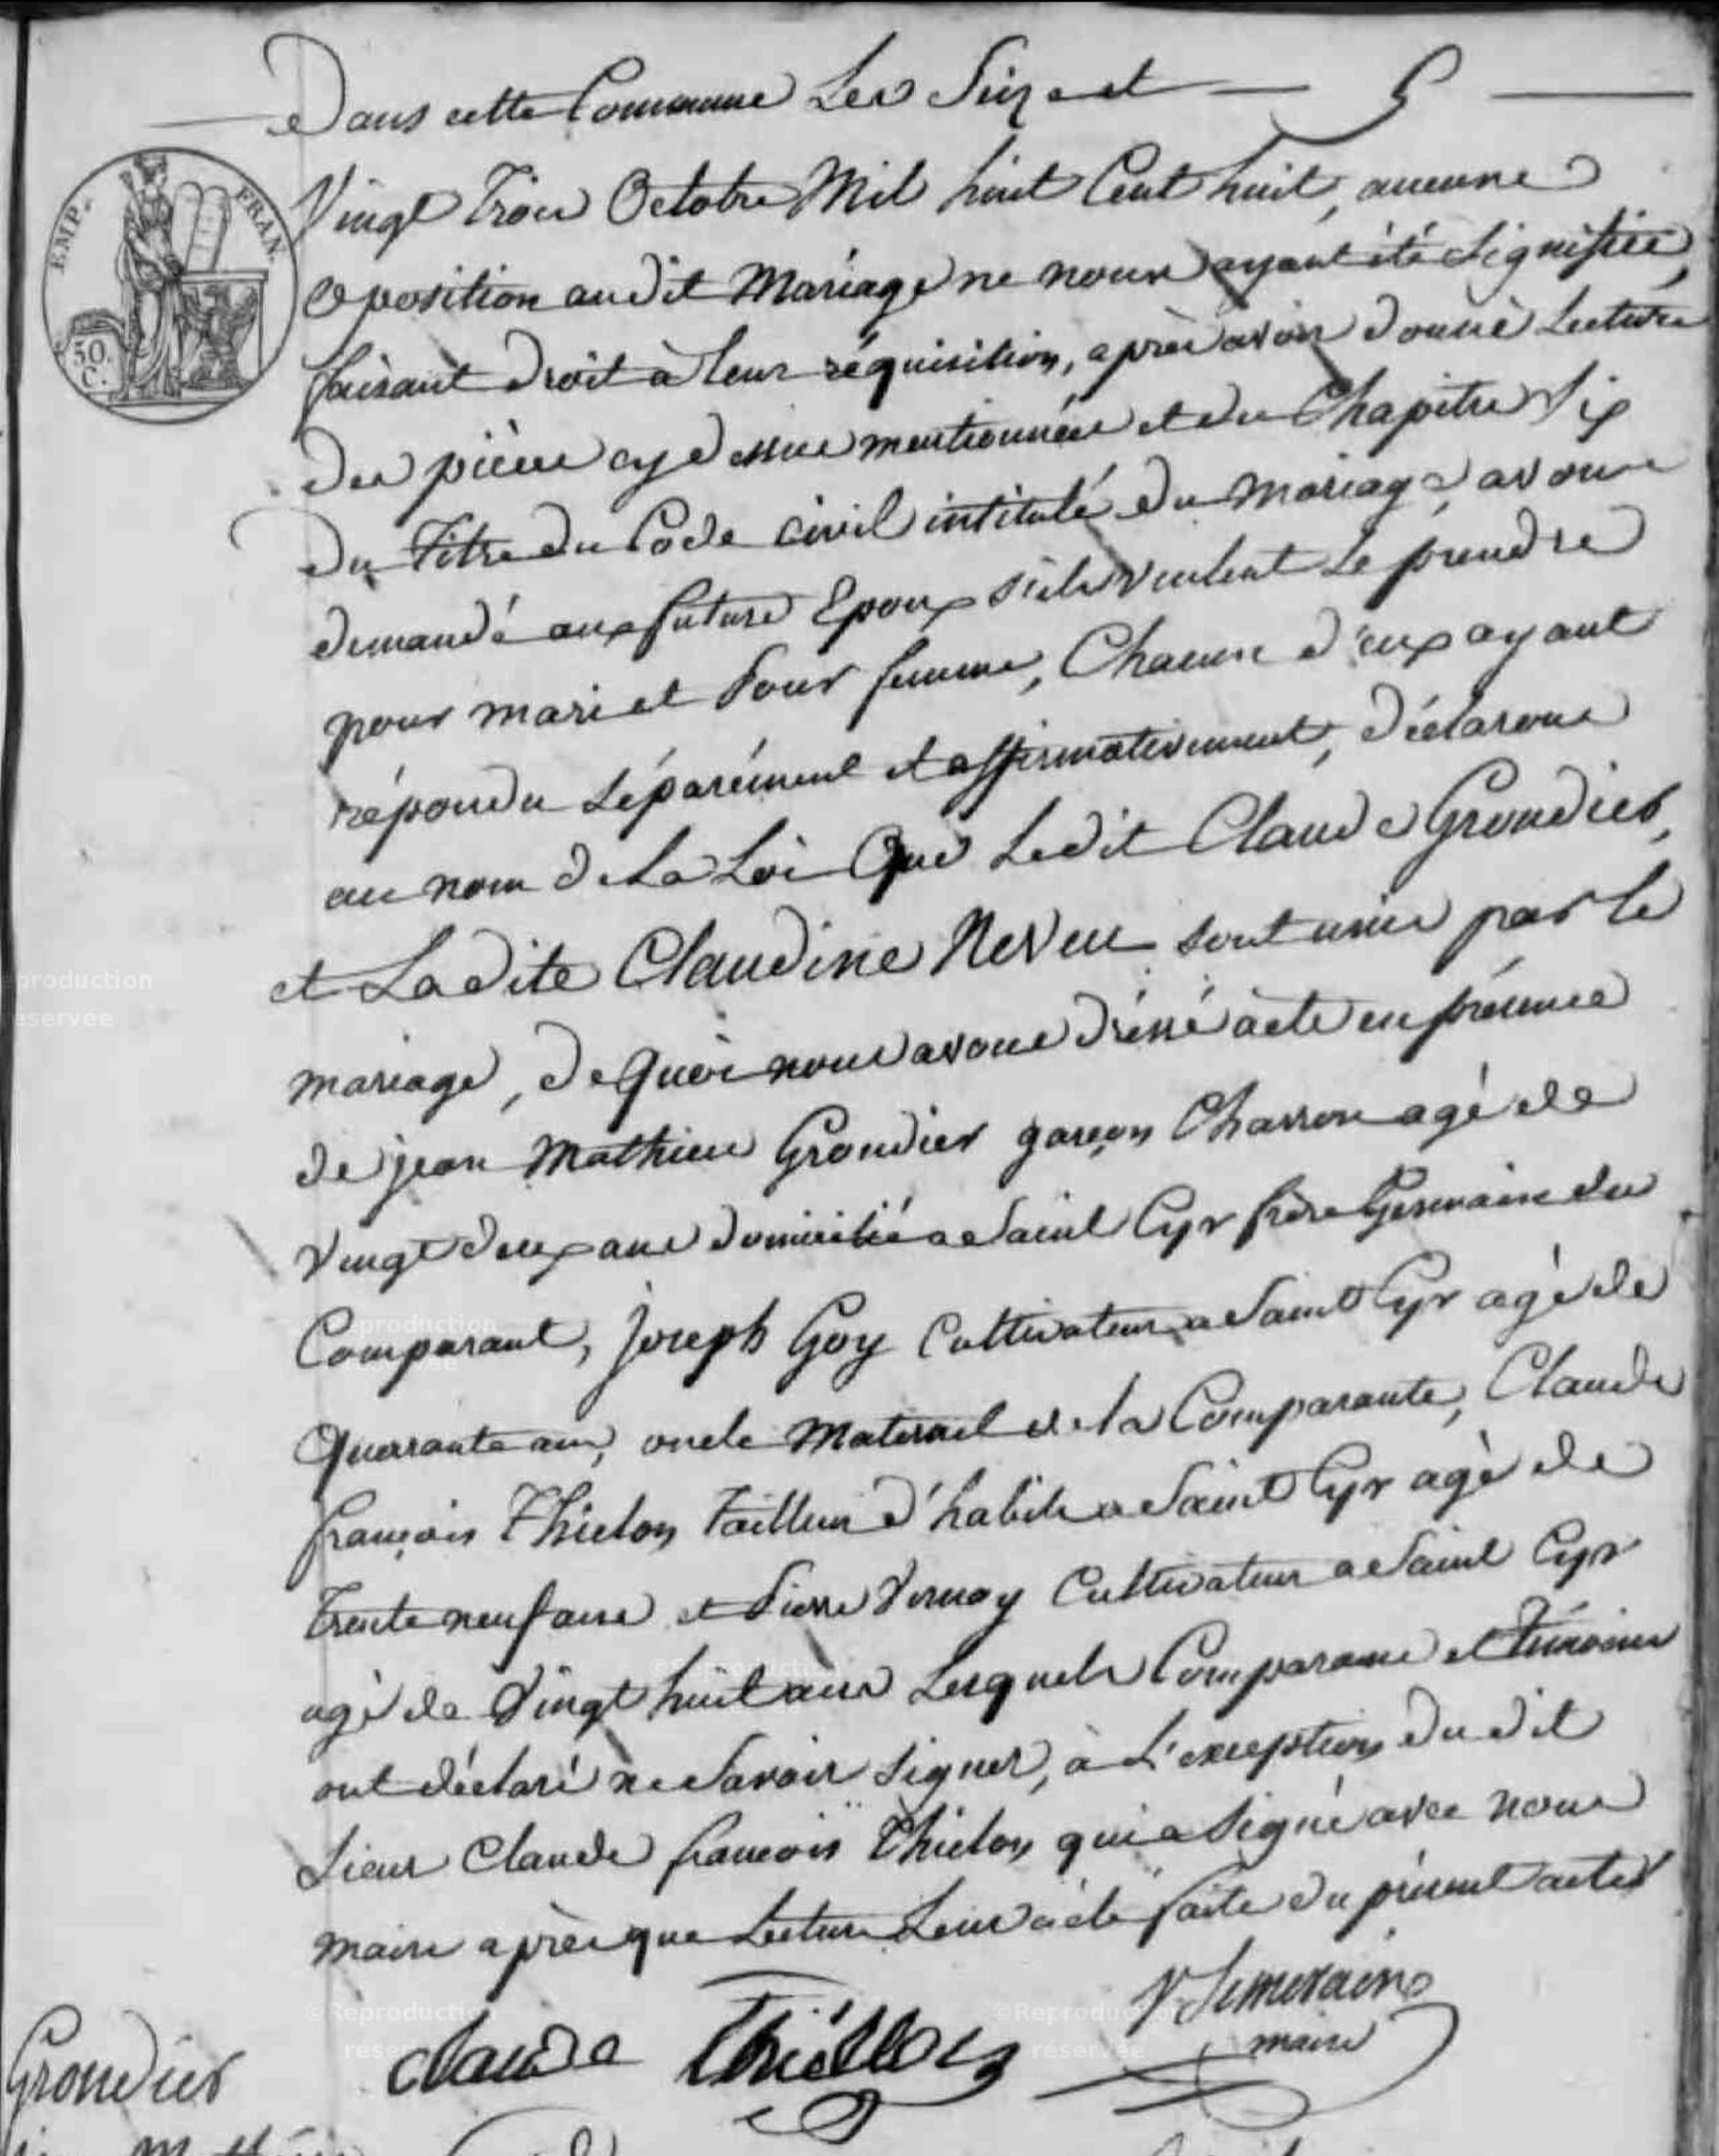 Dans cette Commune Les Seize et 5
Vingt Trois Octobre Mil huit Cent huit, aucune
Oposition audit Mariage ne nous ayant été Signifiée,
faisant droit à leur réquisition, après avoir donné Lecture
des pièces cy dessus mentionnées et du Chapitre Six
Du Titre du Code civil intitulé du Mariage, avons
demandé aux futurs Epoux s'ils veulent se prendre
pour mari et Pour femme, Chacun d'eux ayant
répondu Séparément et affirmativement, déclarons
au nom de La Loi Que Ledit Claude Grondier,
et Ladite Claudine Neveu sont unis par le
mariage, de Quoi nous avons dressé acte en présence
de jean Mathieu Grondier garçon Charron agé de
Vingt deux ans domicilié a Saint Cyr frère Germain du
Comparant, joseph Goy Cultivateur a Saint Cyr agé de
Quarante ans, oncle Maternel de la Comparante, Claude
françois Thielon Tailleur d'habits a Saint Cyr agé de
Trente neuf ans et Pierre Vernay Cultivateur a Saint Cyr
agé de Vingt huit ans Lesquels Comparans et Témoins
ont déclaré ne Savoir Signer, à L'exception du dit
Sieur Claude francois Thielon qui a Signé avec nous
Maire après que Lecture Leur a été faite du présent acte
claude maire
Grondier
EMP. FRAN.
50. C.
© Reproduction réservée